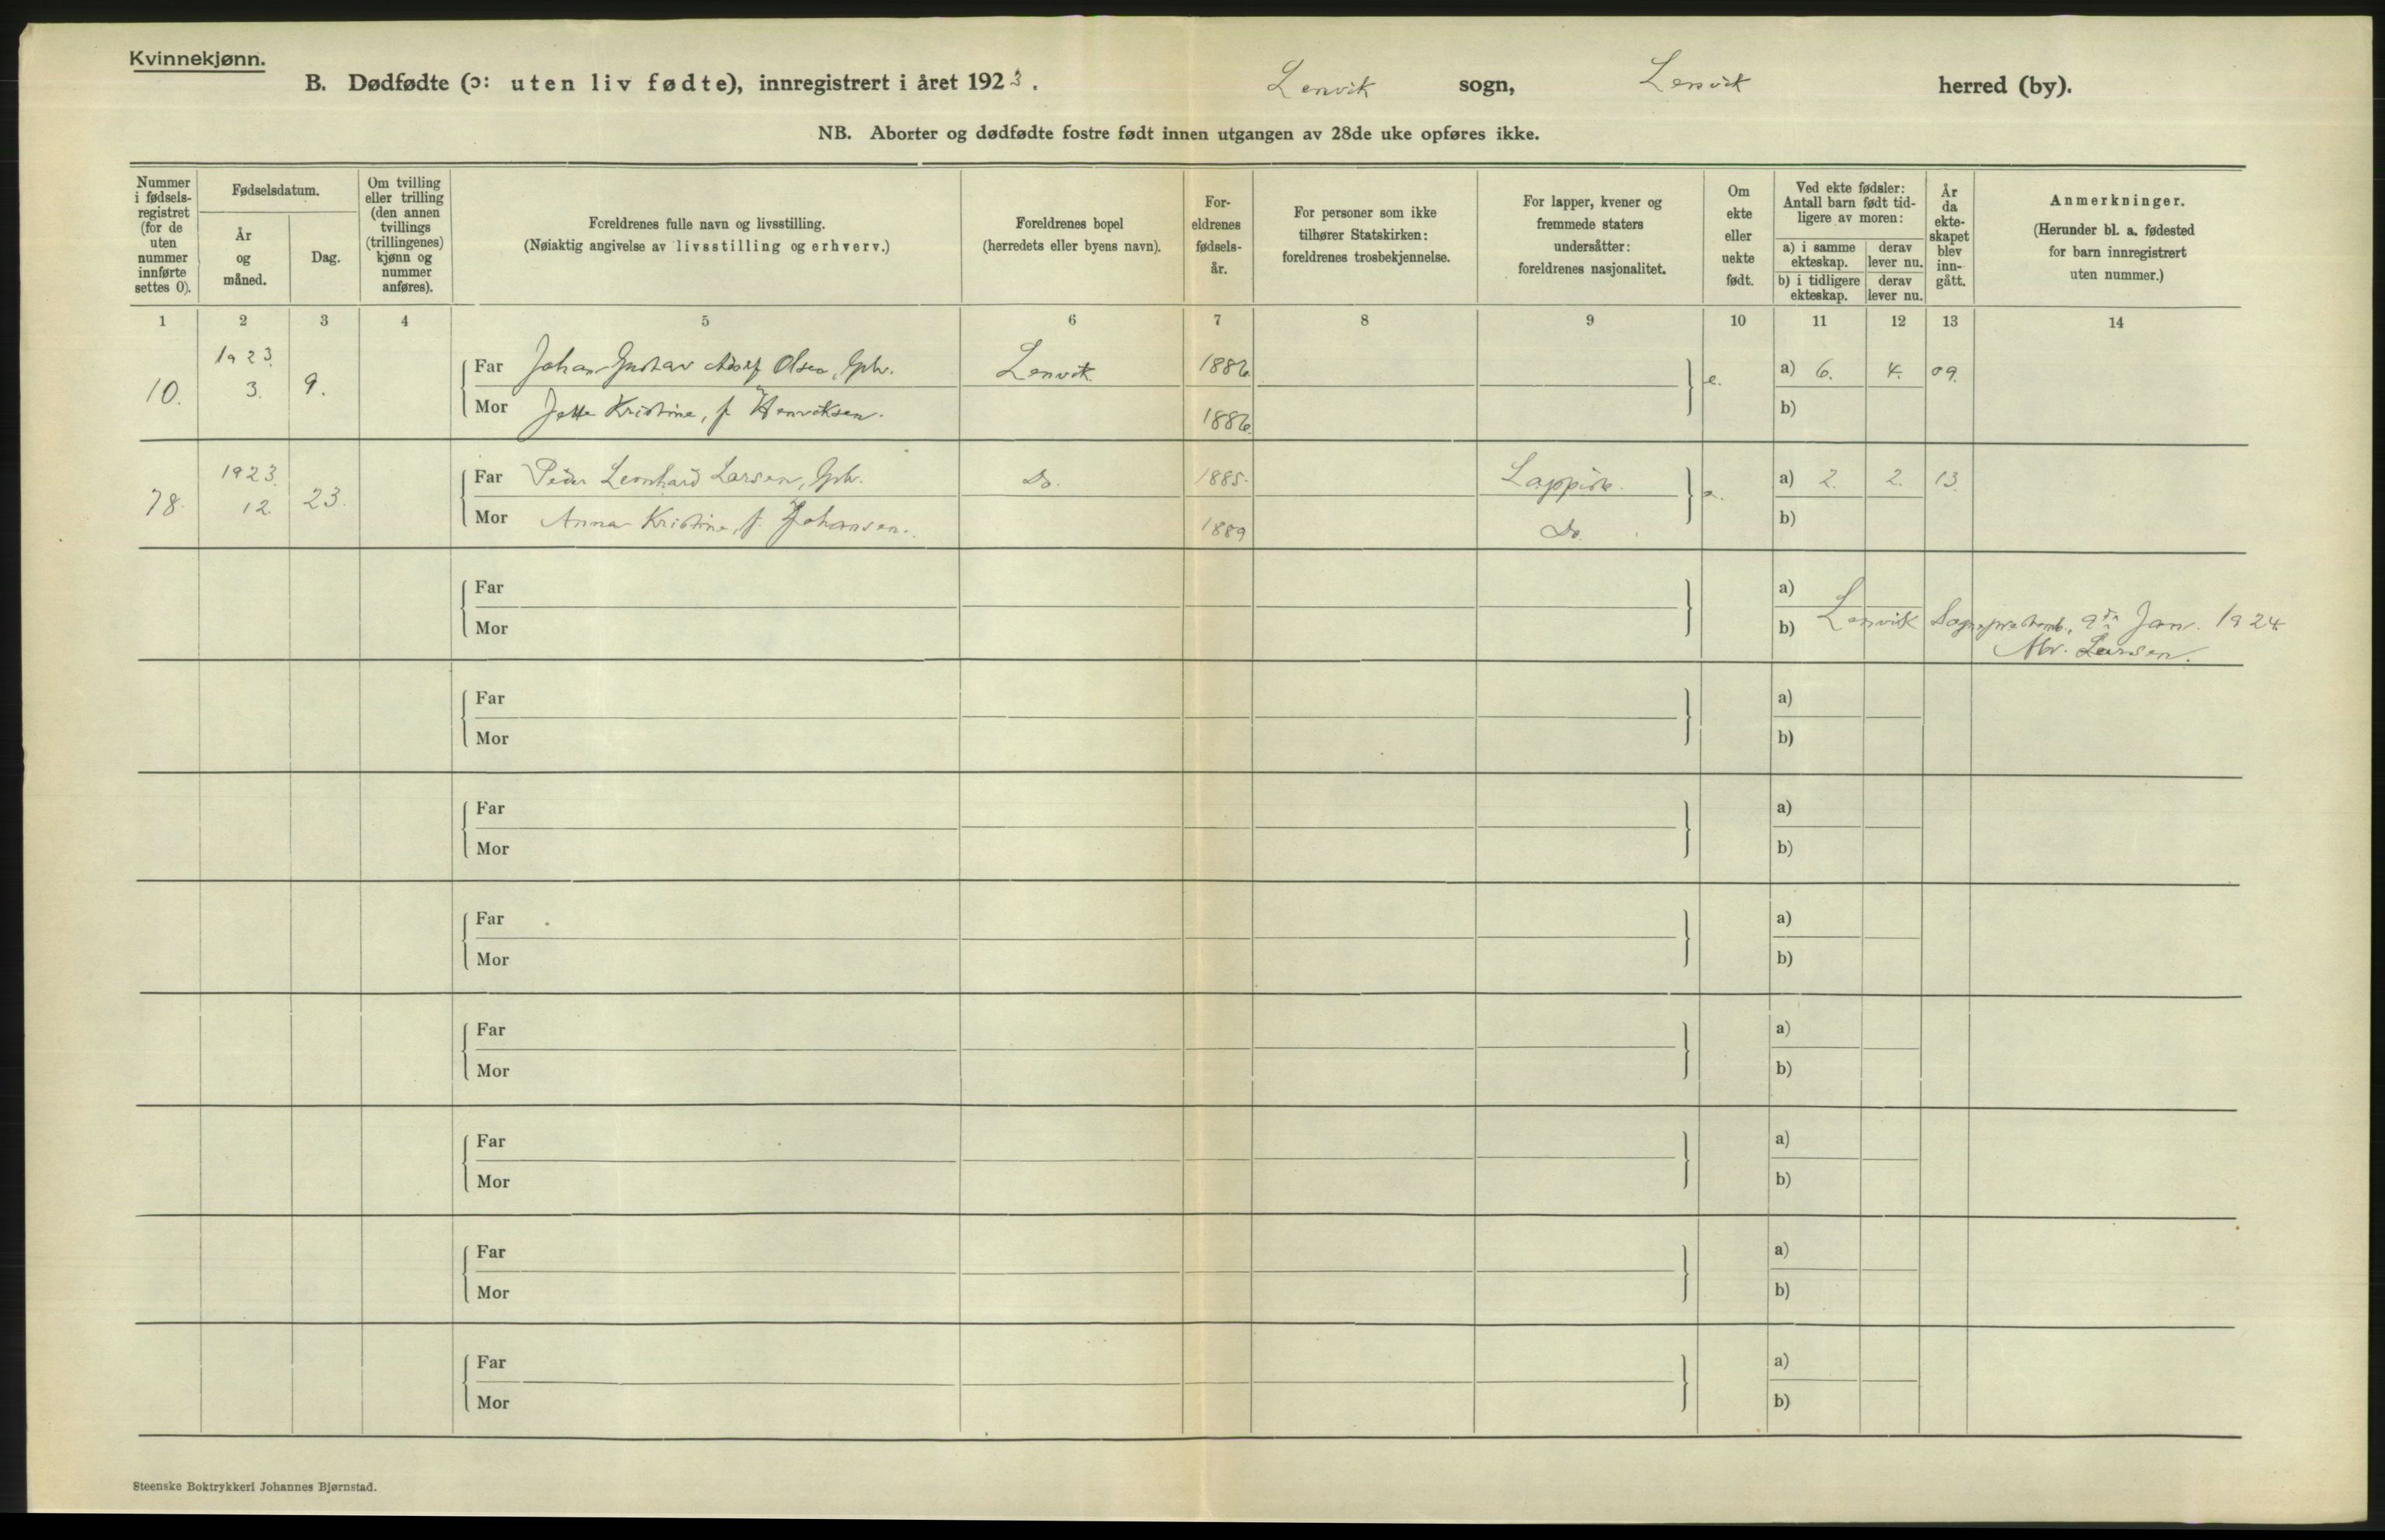 Kvinnekjønn.
B. Dødfødte (ɔ: uten liv fødte), innregistrert i året 1923. Lenvik sogn, Lenvik herred (by).
NB. Aborter og dødfødte fostre født innen utgangen av 28de uke opføres ikke.
Nummer
i fødsels-
registret
(for de
uten
nummer
innførte
settes 0).
Fødselsdatum.
År
og
måned.
Dag.
Om tvilling
eller trilling
(den annen
tvillings
(trillingenes)
kjønn og
nummer
anføres).
Foreldrenes fulle navn og livsstilling.
(Nøiaktig angivelse av livsstilling og erhverv.)
Foreldrenes bopel
(herredets eller byens navn).
For-
eldrenes
fødsels-
år.
For personer som ikke
tilhører Statskirken:
foreldrenes trosbekjennelse.
For lapper, kvener og
fremmede staters
undersåtter:
foreldrenes nasjonalitet.
Om
ekte
eller
uekte
født.
Ved ekte fødsler:
Antall barn født tid-
ligere av moren:
a) i samme
ekteskap.
derav
lever nu.
b) i tidligere
ekteskap.
derav
lever nu.
År
da
ekte-
skapet
blev
inn-
gått.
Anmerkninger.
(Herunder bl. a. fødested
for barn innregistrert
uten nummer.)
1 2 3 4 5 6 7 8 9 10 11 12 13 14
10. 1923. 3. 9. Far Johan Gustav Adolf Olsen, Gbr. Lenvik 1886 e. a) 6. 4. 09.
Mor Jette Kristine, f. Henriksen. 1886. b)
78. 1923. 12. 23. Far Peder Leonhard Larsen, Gbr. Do. 1885. Lappisk. a) 2. 2. 13.
Mor Anna Kristine, f. Johansen. 1889 Do. b)
Far a)
Mor b) Lenvik 9de Jan. 1924
Larsen.
Far a)
Mor b)
Far a)
Mor b)
Far a)
Mor b)
Far a)
Mor b)
Far a)
Mor b)
Far a)
Mor b)
Far a)
Mor b)
Steenske Boktrykkeri Johannes Bjørnstad.